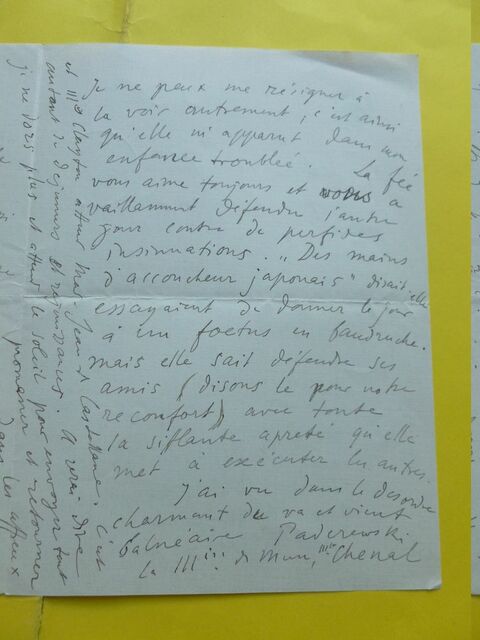 Je ne peux me résigner à
la voir autrement, c'est ainsi
qu'elle m'apparut dans mon
enfance troublée. La fée
vous aime toujours et vous a
vaillamment défendu l'autre
jour contre de perfides
insinuations. "Des mains
d'accoucheur japonais" disait-elle
essayaient de donner le jour
à un foetus en baudruche.
mais elle sait défendre ses
amis (disons le pour votre
reconfort) avec toute
la siflante apreté qu'elle
met à exécuter les autres.
J'ai vu dans le desordre
charmant du va et vient
balnéaire Paderewski
la de Mun, Chenal
et Clayton attend Mad. Jean de Castellane. c'est
autant de dejeuners et rejouissances. A vrai dire
je ne dors plus et attend le soleil pour envoyer tout
promener et retourner
dans les affreux